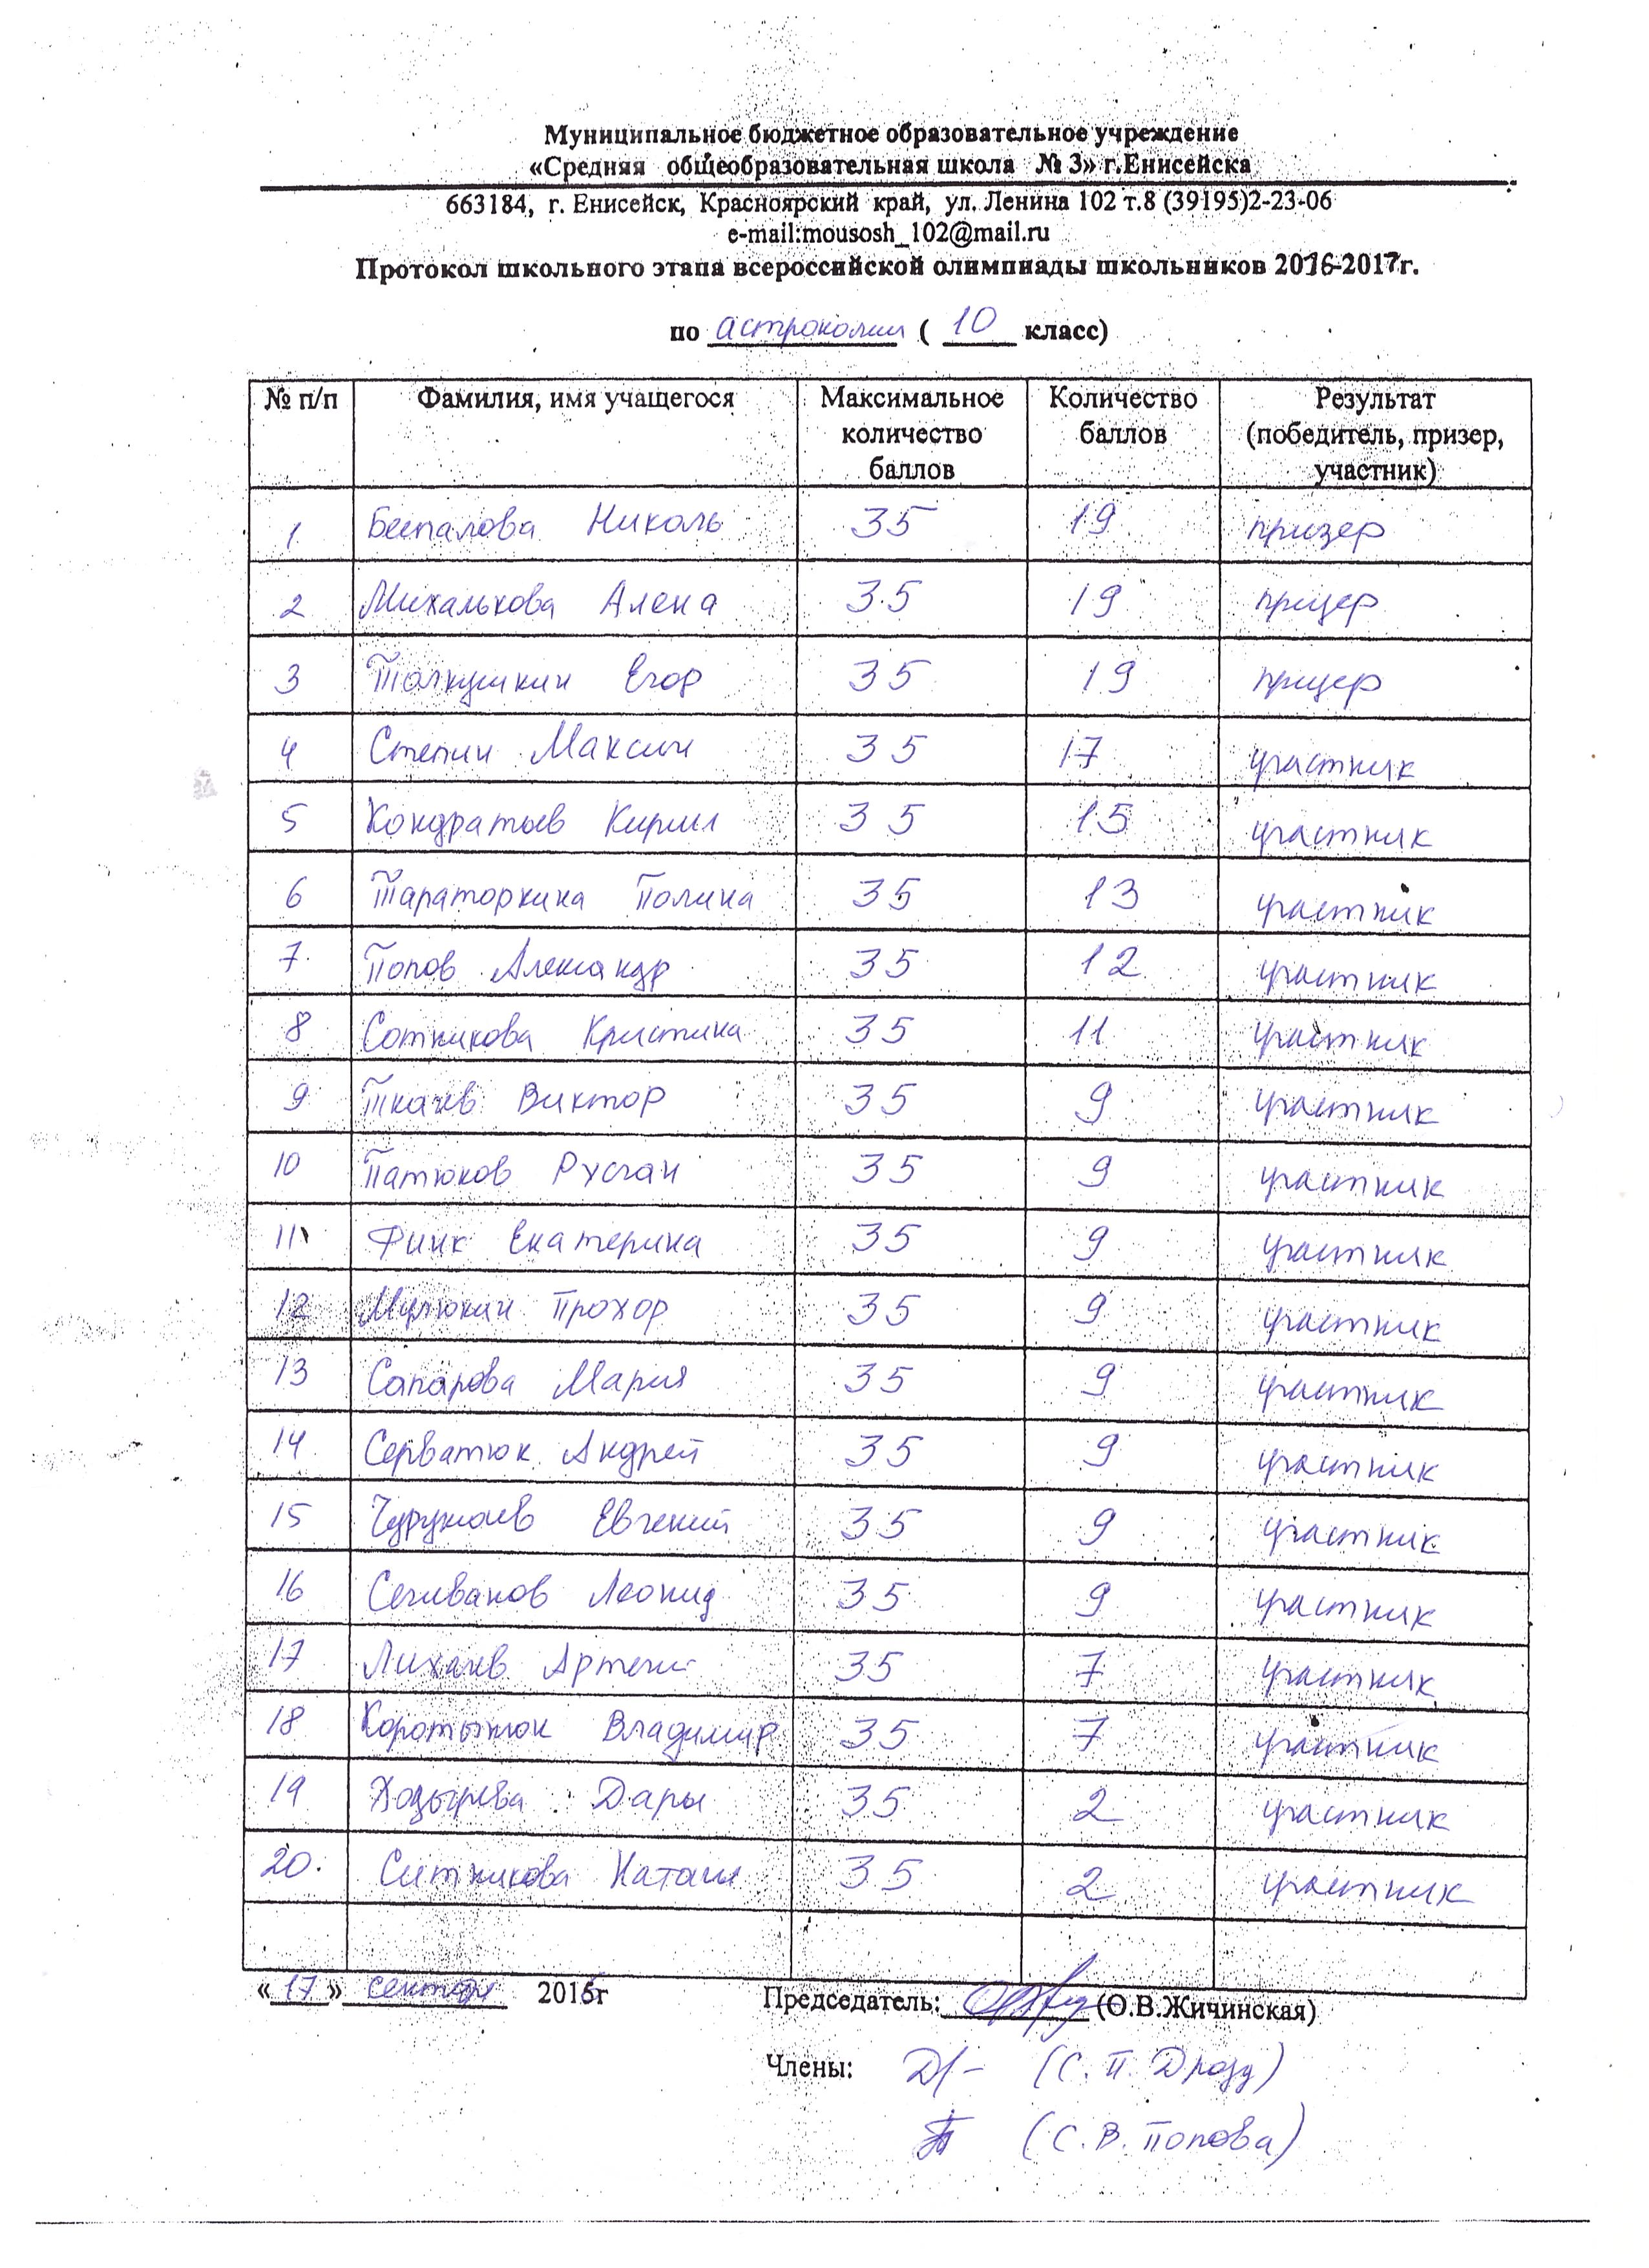 Муниципальное бюджетное образовательное учреждение
«Средняя общеобразовательная школа № 3» г.Енисейска
663184, г. Енисейск, Красноярский край, ул. Ленина 102 т.8 (39195)2-23-06
e-mail:mousosh_102@mail.ru
Протокол школьного этапа всероссийской олимпиады школьников 2016-2017г.
по астрономии ( 10 класс)
№ п/п Фамилия, имя учащегося Максимальное количество баллов Количество баллов Результат (победитель, призер, участник)
1 Беспалова Николь 35 19 призер
2 Михалькова Алена 35 19 призер
3 Толкушкин Егор 35 19 призер
4 Степин Максим 35 17 участник
5 Кондратьев Кирилл 35 15 участник
6 Тараторкина Полина 35 13 участник
7. Попов Александр 35 12 участник
8 Сотникова Кристина 35 11 участник
9 Ткачев Виктор 35 9 участник
10 Патюков Руслан 35 9 участник
11 Финк Екатерина 35 9 участник
12 Прохор 35 9 участник
13 Сапарова Мария 35 9 участник
14 Серватюк Андрей 35 9 участник
15 Евгений 35 9 участник
16 Селиванов Леонид 35 9 участник
17 Лихачев Артем 35 7 участник
18 Владимир 35 7 участник
19 Дарья 35 2 участник
20. Ситникова Наташа 35 2 участник
«17» сентября 2016г Председатель: (О.В.Жичинская)
Члены: (С. П. Дрозд)
(С. В. Попова)